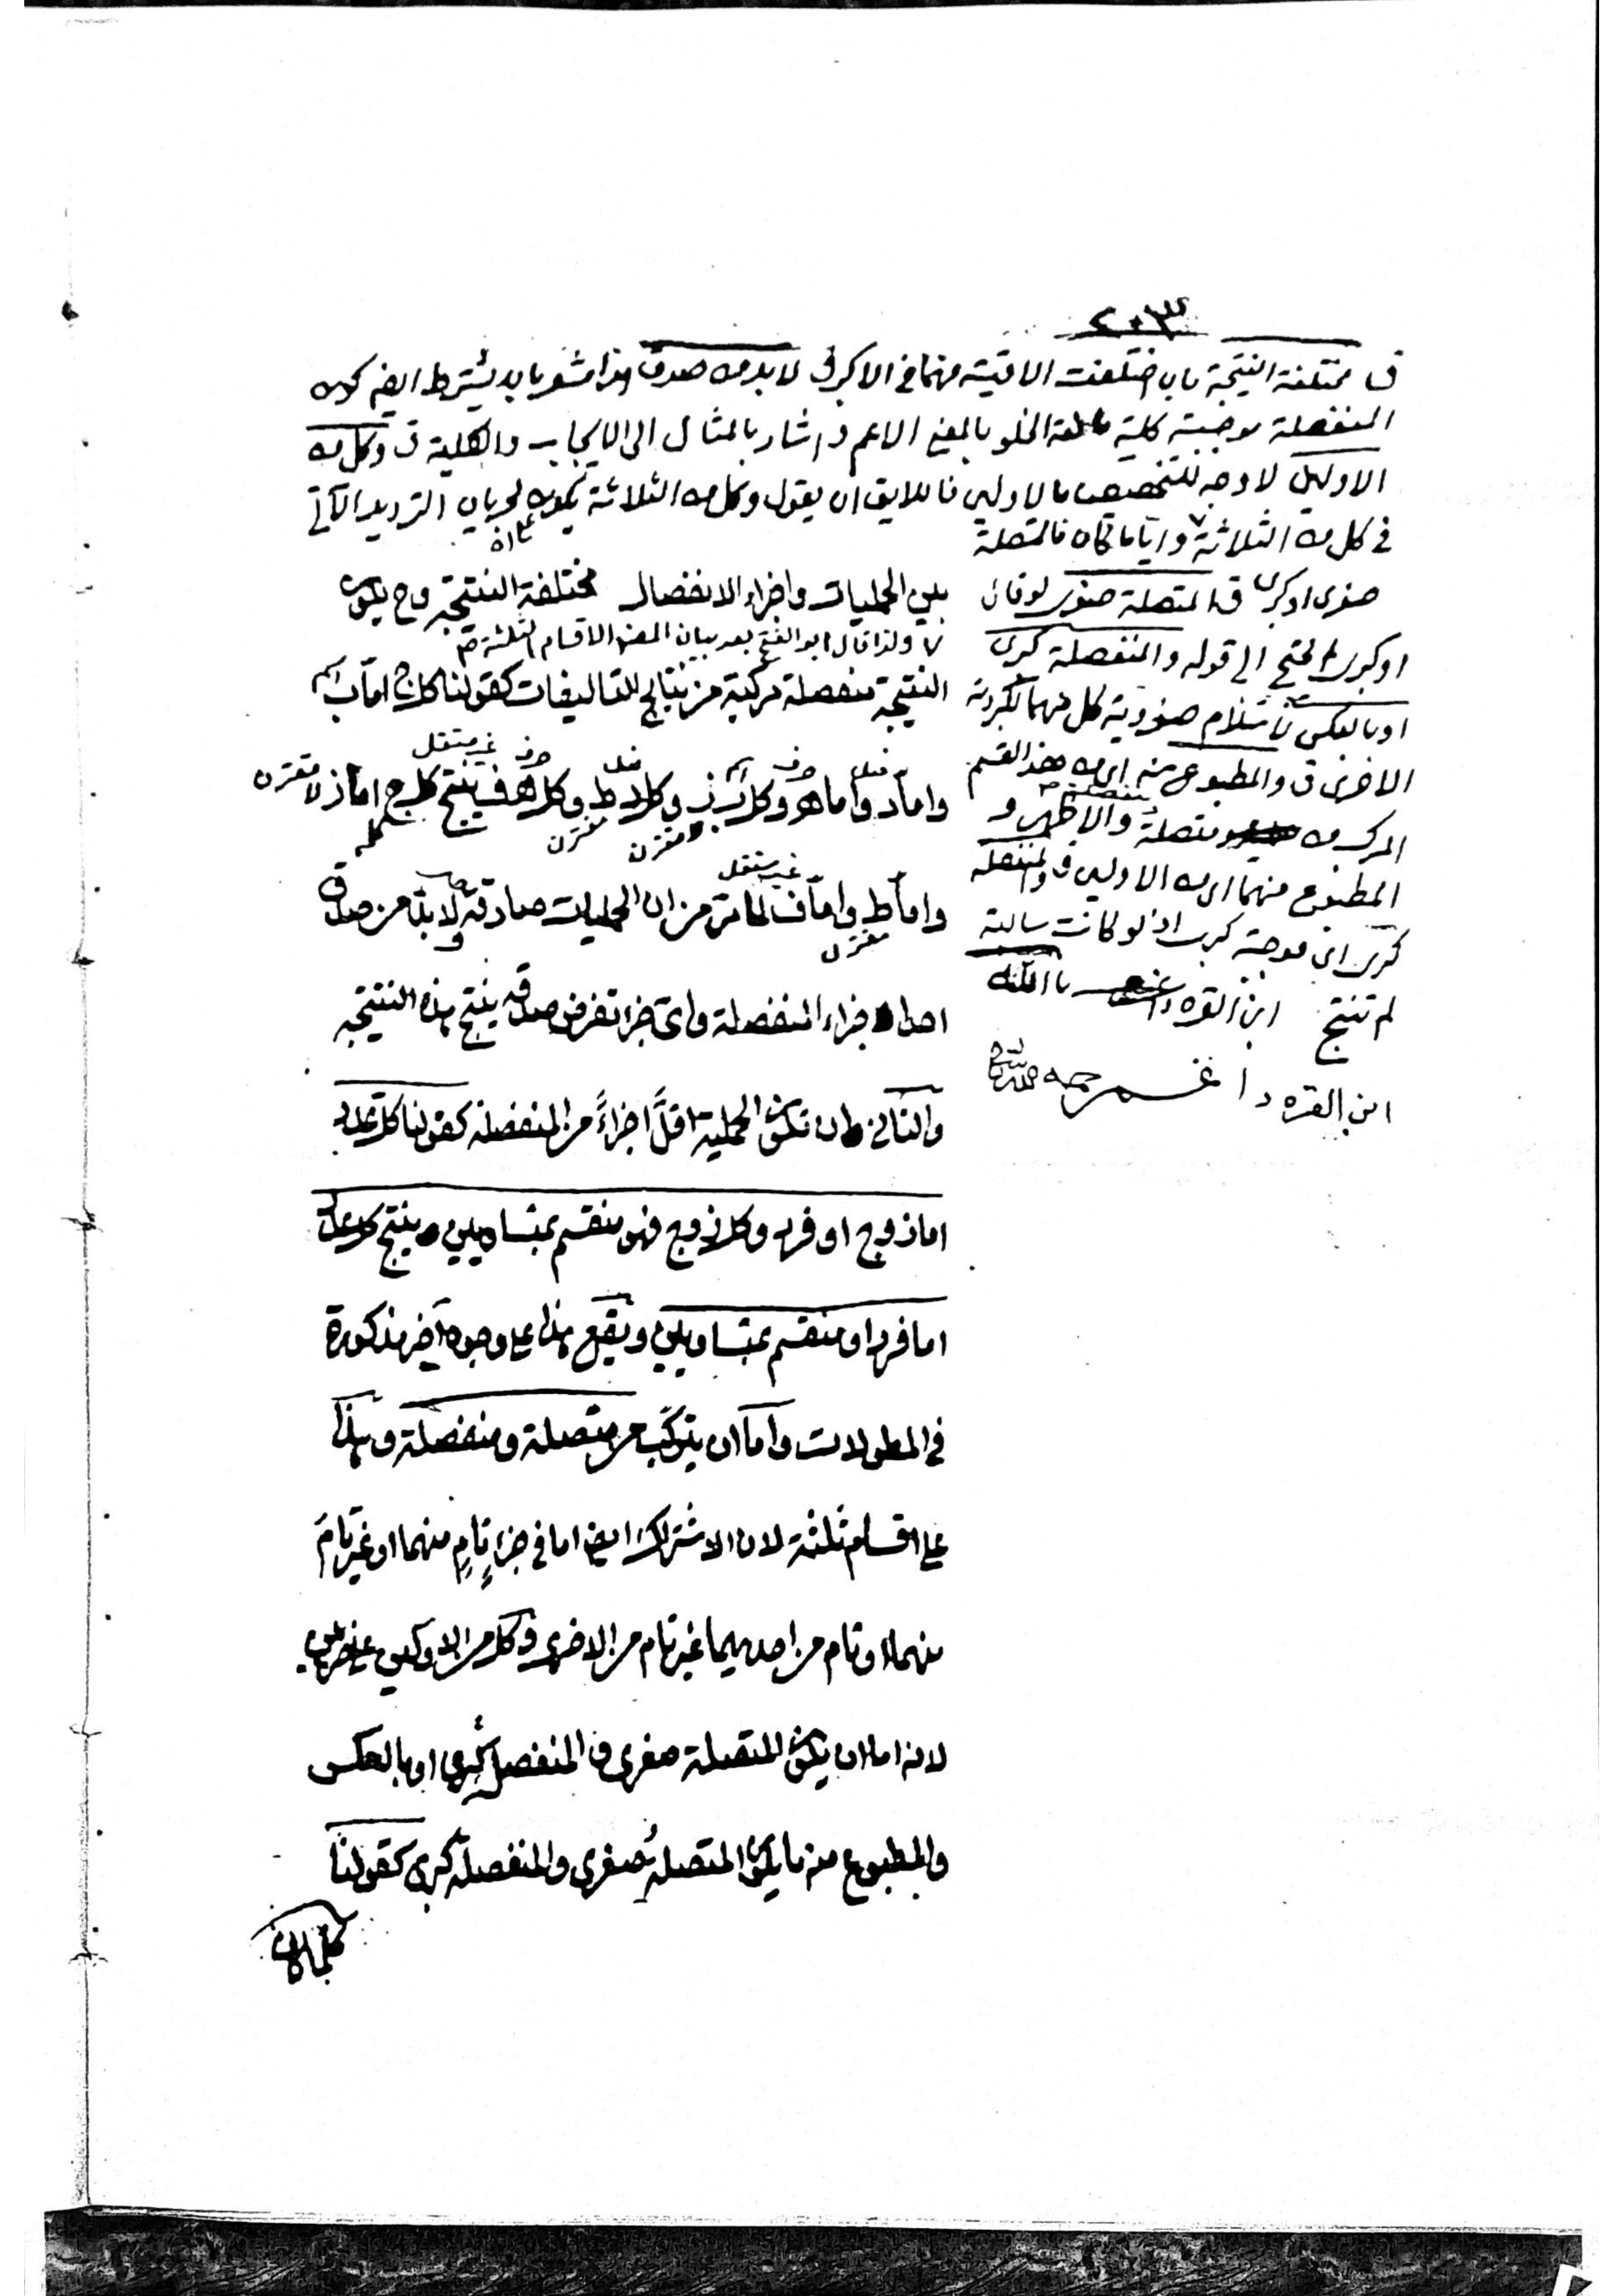 ٢٠٣
قـ مختلفة النتيجة بان اختلفت الاقيسة منهما في الاكبر قـ لا بد من صدق هذا مشعر بانه يشترط ايضا كون
المنفصلة موجبة كلية مانعة الخلو بالمعنى الاعم واشار بالمثال الى الايجاب والكلية قـ وكل من
الاولين لا وجه للتخصيص بالاولين فاللايق ان يقول وكل من الثلاثة لجريان الترديد الآتي
في كل من الثلاثة وايا ما كان فالمتصلة
صغرى او كبرى قـ المتصلة صغرى لو قال
او كبرى الى قوله والمنفصلة كبرى
او بالعكس لاستلزام صغروية كل منهما لكبروية
الاخرى قـ والمطبوع منه اى من هذا القسم
المركب من متصلة والاظهر و
المطبوع منهما اى من الاولين قـ والمنفصلة
كبرى اى موجبة كبرى اذ لو كانت سالبة
لم تنتج ابن القره داغى
ابن القره داغى رحمه الله
بين الحمليات واجزاء الانفصال مختلفة النتيجة وح يكون
٧ ولذا قال ابو الفتح بعد بيان المص الاقسام الثلثة
النتيجة منفصلة مركبة من نتايج التاليفات كقولنا كل ج اما ب
واما د واما هـ وكل ب ز وكل د ط وكل هـ ف ينتج كل ج اما ز
فعل حرف اسم فعل حرف غير مستقل
مقترن مقترن لا مقترن
واما ط واما ف لما مر من ان الحمليات صادقة ولا بد من صدق
غير مستقل
مقترن
احد اجزاء المنفصلة واى جزء تفرض صدقه ينتج هذه النتيجة
والثاني ان تكون الحملية اقل اجزاءً من المنفصلة كقولنا كل عدد
اما زوج او فرد وكل زوج فهو منقسم بمتساويين ينتج كل عدد
اما فرد او منقسم بمتساويين ويقع هذا على وجوه اخر مذكورة
في المطولات واما ان يتركب من متصلة ومنفصلة وهذا
على اقسام ثلثة لان الاشتراك ايضا اما في جزء تام منهما او غير تام
منهما او تام من احديهما غير تام من الاخرى وكل من الاولين على ضربين
لانه اما ان يكون المتصلة صغرى والمنفصلة كبرى او بالعكس
والمطبوع منه ما يكون المتصلة صغرى والمنفصلة كبرى كقولنا
كلما كان